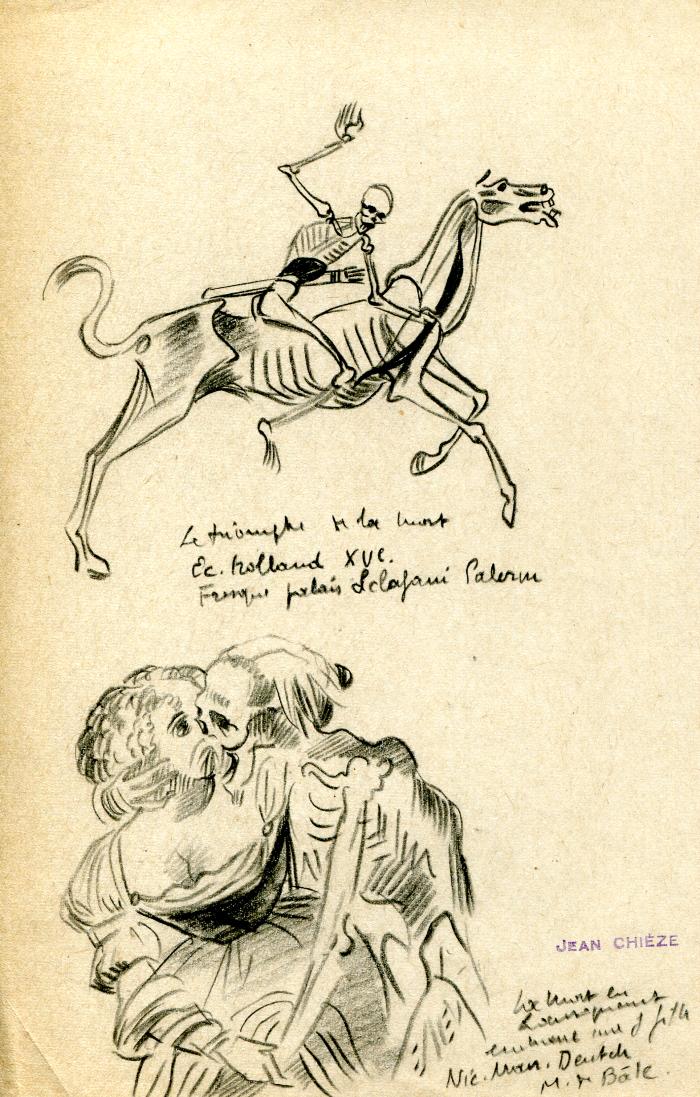 Le triomphe de la mort
Ec. Holland XVe.
Fresque palais Sclafani Palerm
JEAN CHIÈZE
La mort en
embrasse une j fille
Nic. Man. Deutch
M. de Bâle.